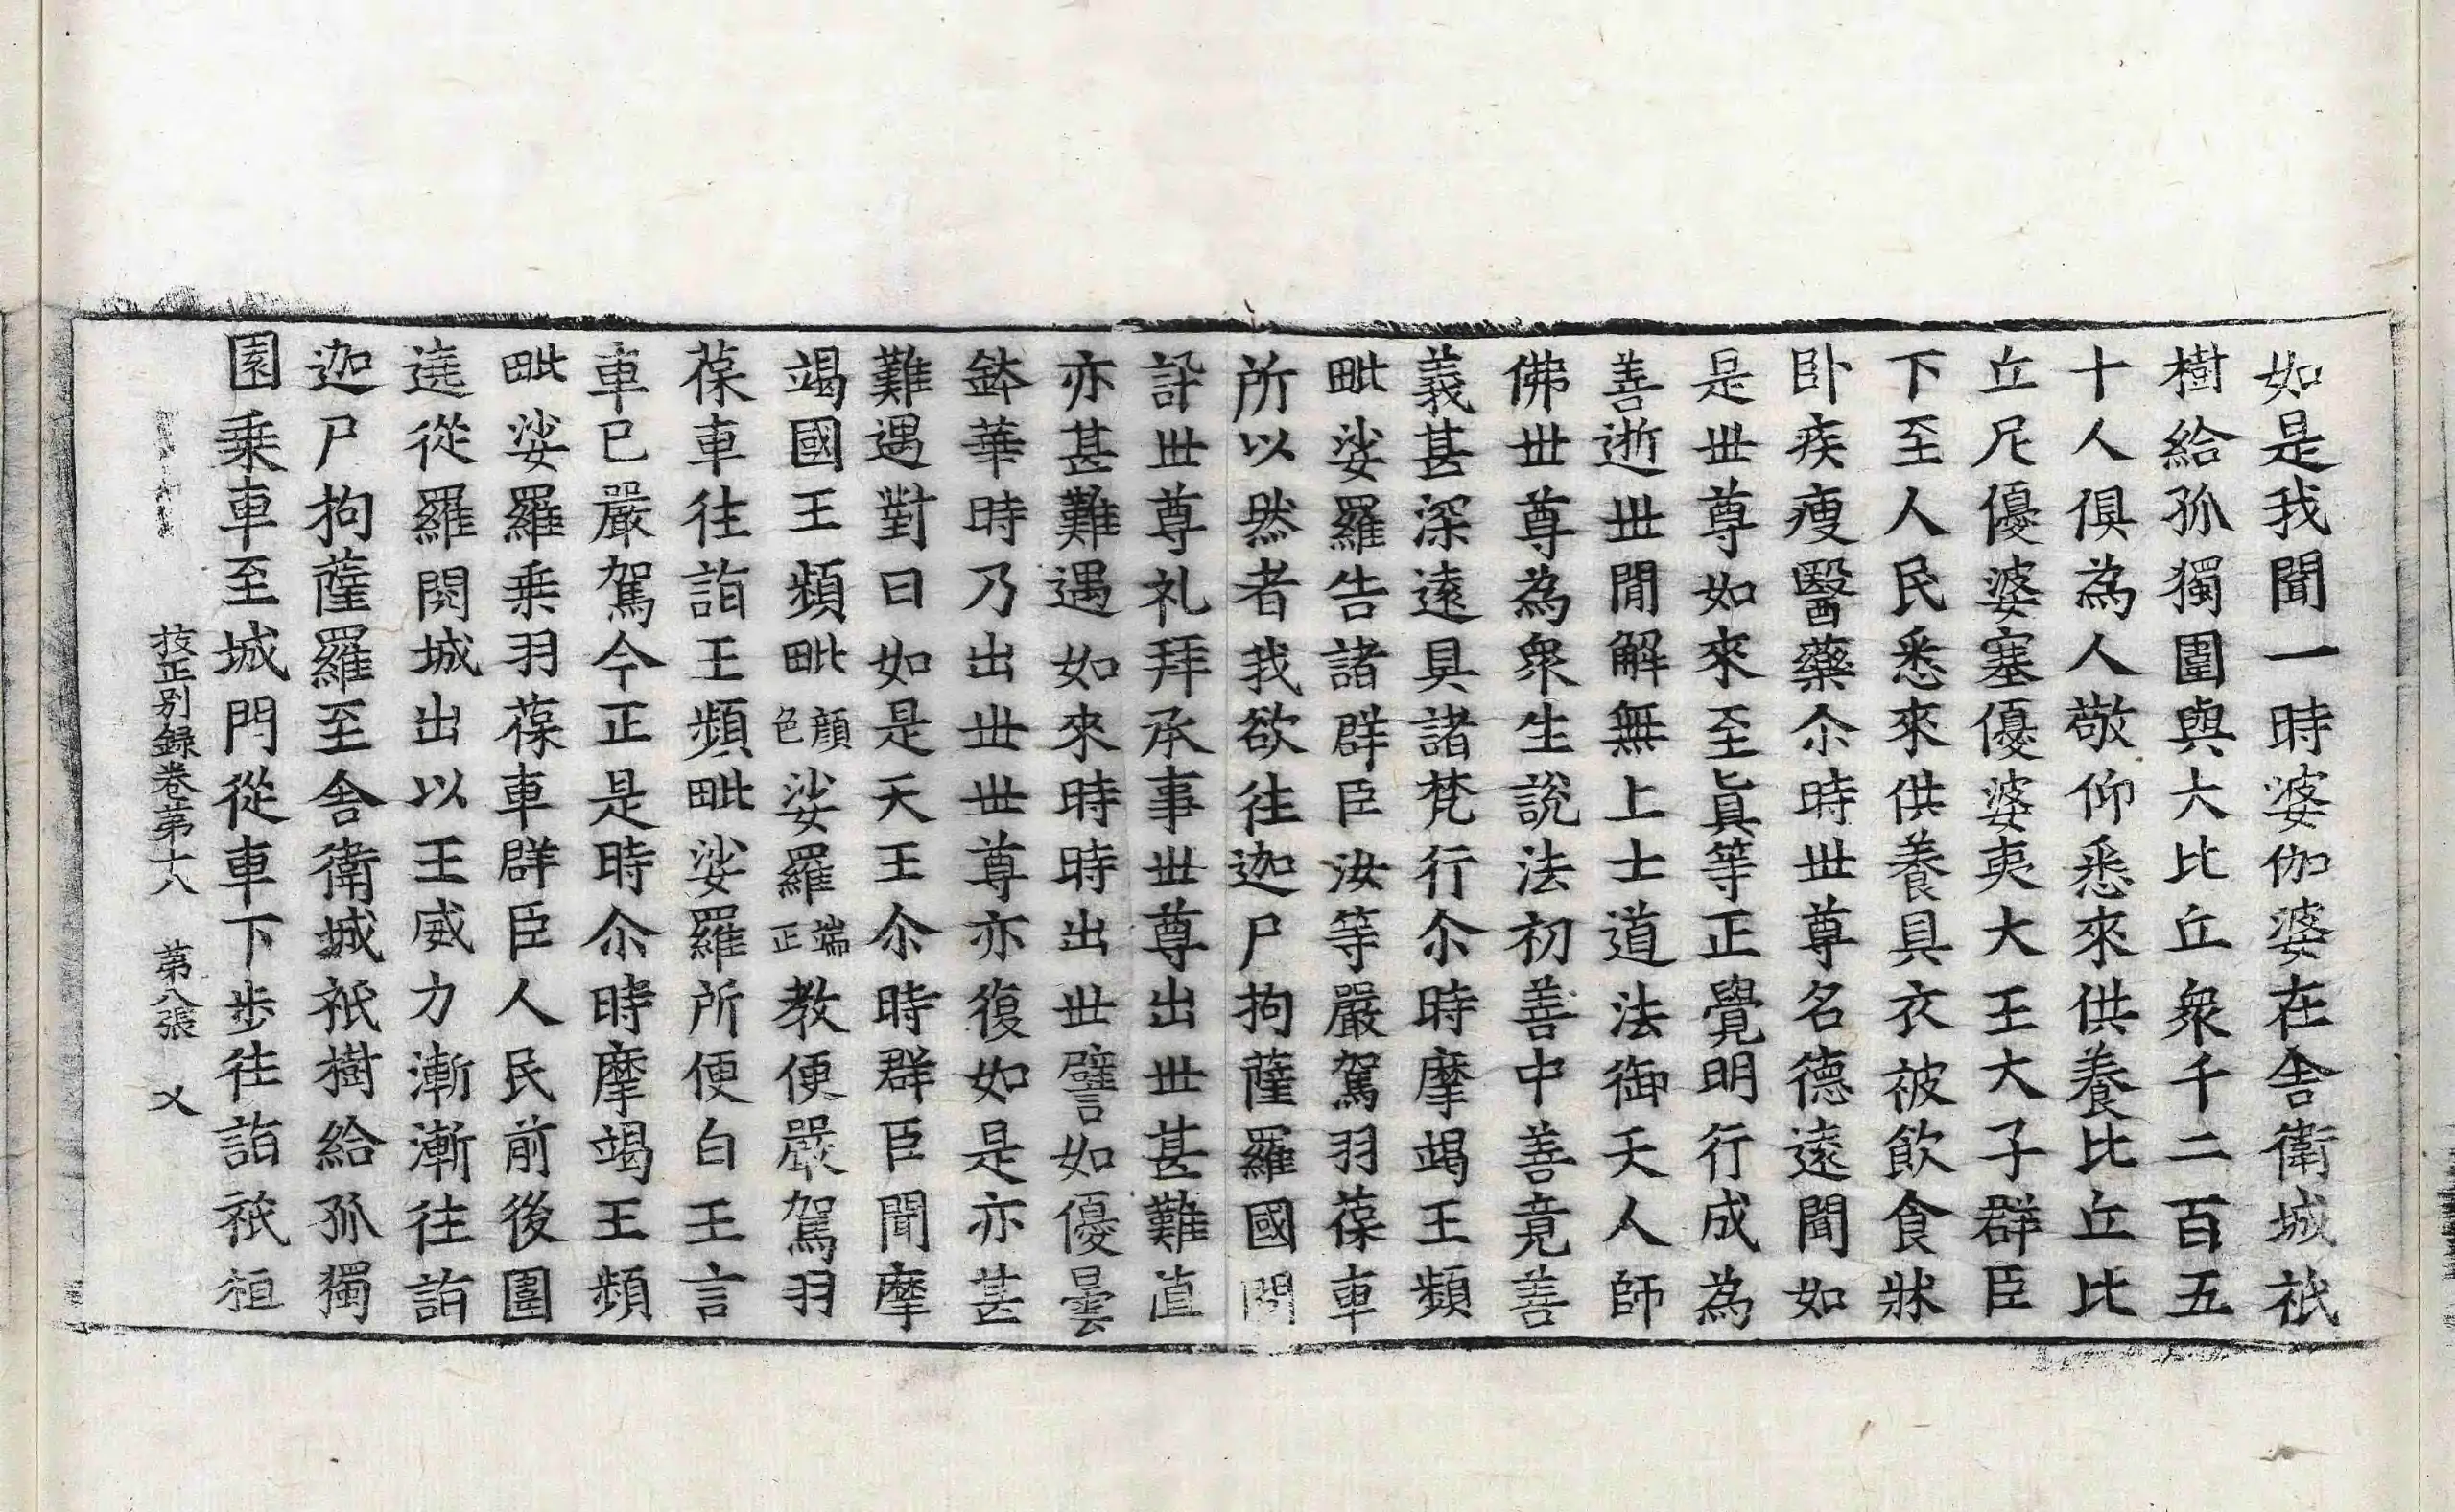 如是我聞一時婆伽婆在舎衛城祇
樹給孤獨園與大比丘衆千二百五
十人俱為人敬仰悉來供養比丘比
丘尼優婆塞優婆夷大王大子群臣
下至人民悉來供養具衣被飲食牀
卧疾瘦醫藥尒時世尊名德遠聞如
是世尊如來至眞等正覺明行成為
善逝世閒解無上士道法御天人師
佛世尊為衆生說法初善中善竟善
義甚深遠具諸梵行尒時摩竭王頻
毗娑羅告諸群臣汝等嚴駕羽葆車
所以然者我欲往迦尸拘薩羅國問
訊世尊礼拜承事世尊出世甚難值
亦甚難遇如來時時出世譬如優曇
鉢華時乃出世世尊亦復如是亦甚
難遇對曰如是天王尒時群臣聞摩
竭國王頻毗顔色娑羅端正教便嚴駕羽
葆車往詣王頻毗娑羅所便白王言
車已嚴駕今正是時尒時摩竭王頻
毗娑羅乗羽葆車群臣人民前後圍
遶從羅閱城出以王威力漸漸往詣
迦尸拘薩羅至舎衛城祇樹給孤獨
園乗車至城門從車下步往詣祇洹
挍正别録卷苐十八 苐八張 乂